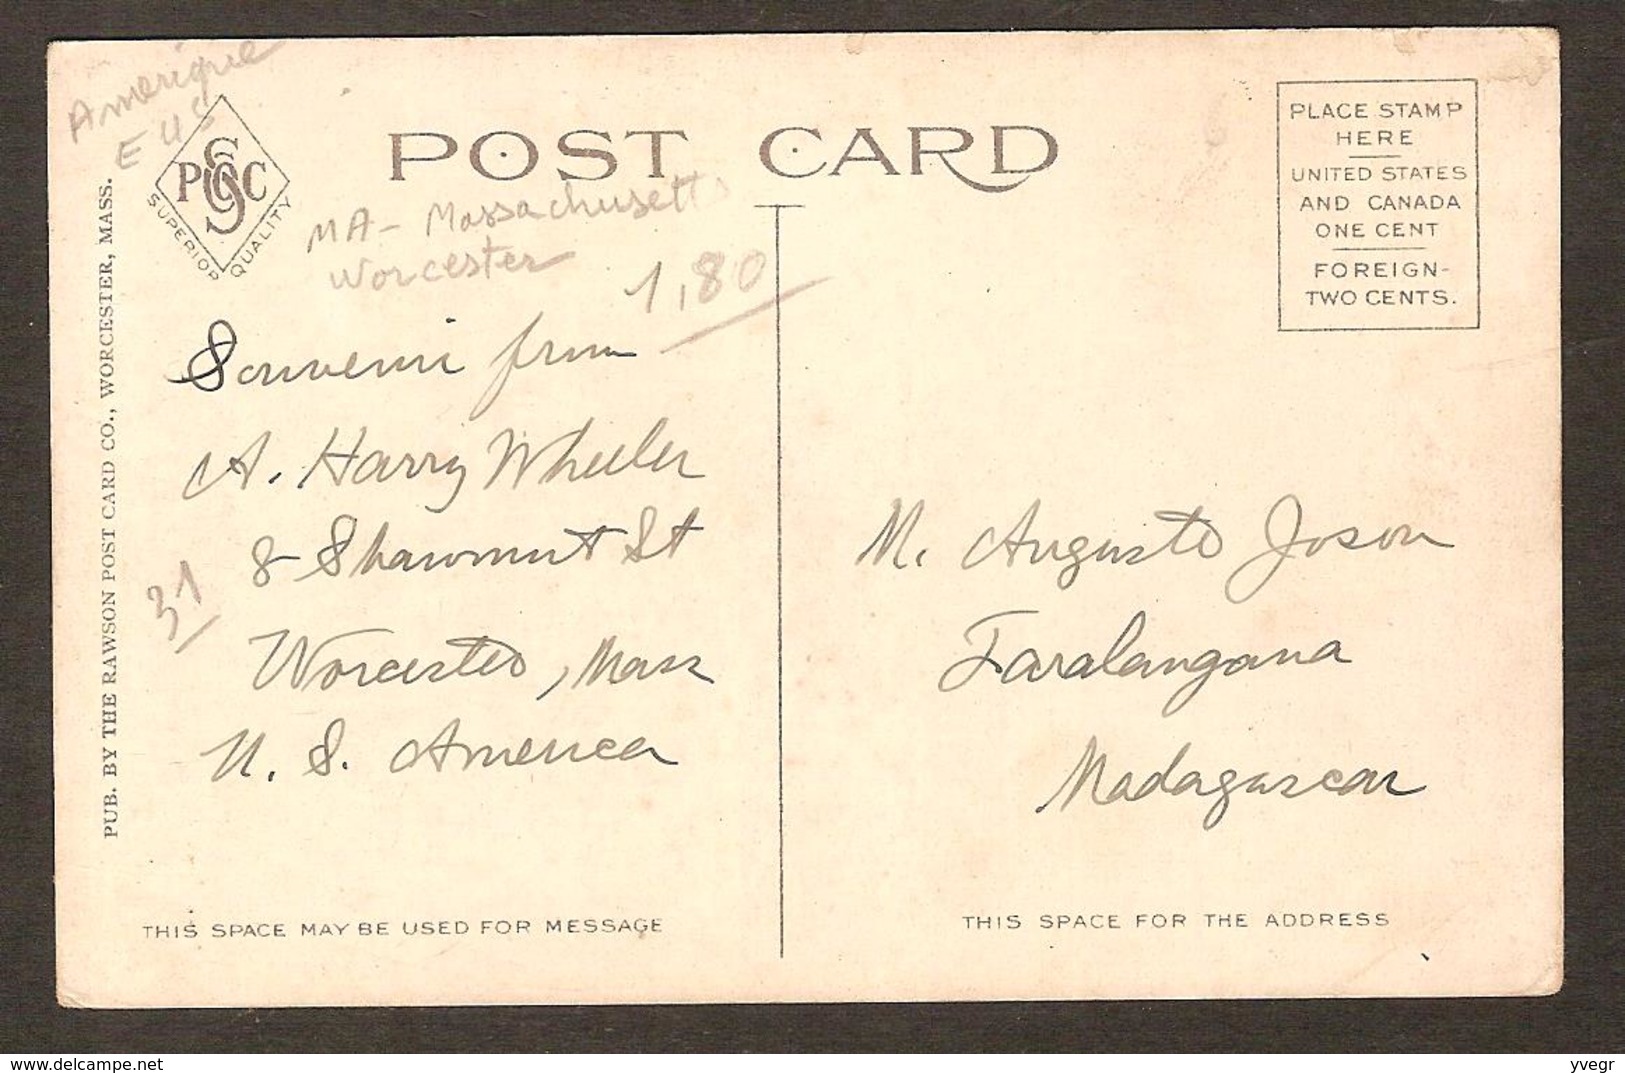 Amerique
E U S
P S C
SUPERIOR QUALITY
POST CARD
MA - Massachusetts
Worcester
1,80
PLACE STAMP
HERE
UNITED STATES
AND CANADA
ONE CENT
FOREIGN-
TWO CENTS.
PUB. BY THE RAWSON POST CARD CO., WORCESTER, MASS.
Souvenir from
A. Harry Wheeler
8 Shawmut St
31
Worcester, Mass
U. S. America
THIS SPACE MAY BE USED FOR MESSAGE
M. Auguste Joson
Faralangana
Madagascar
THIS SPACE FOR THE ADDRESS
delcampe.net
yvegr